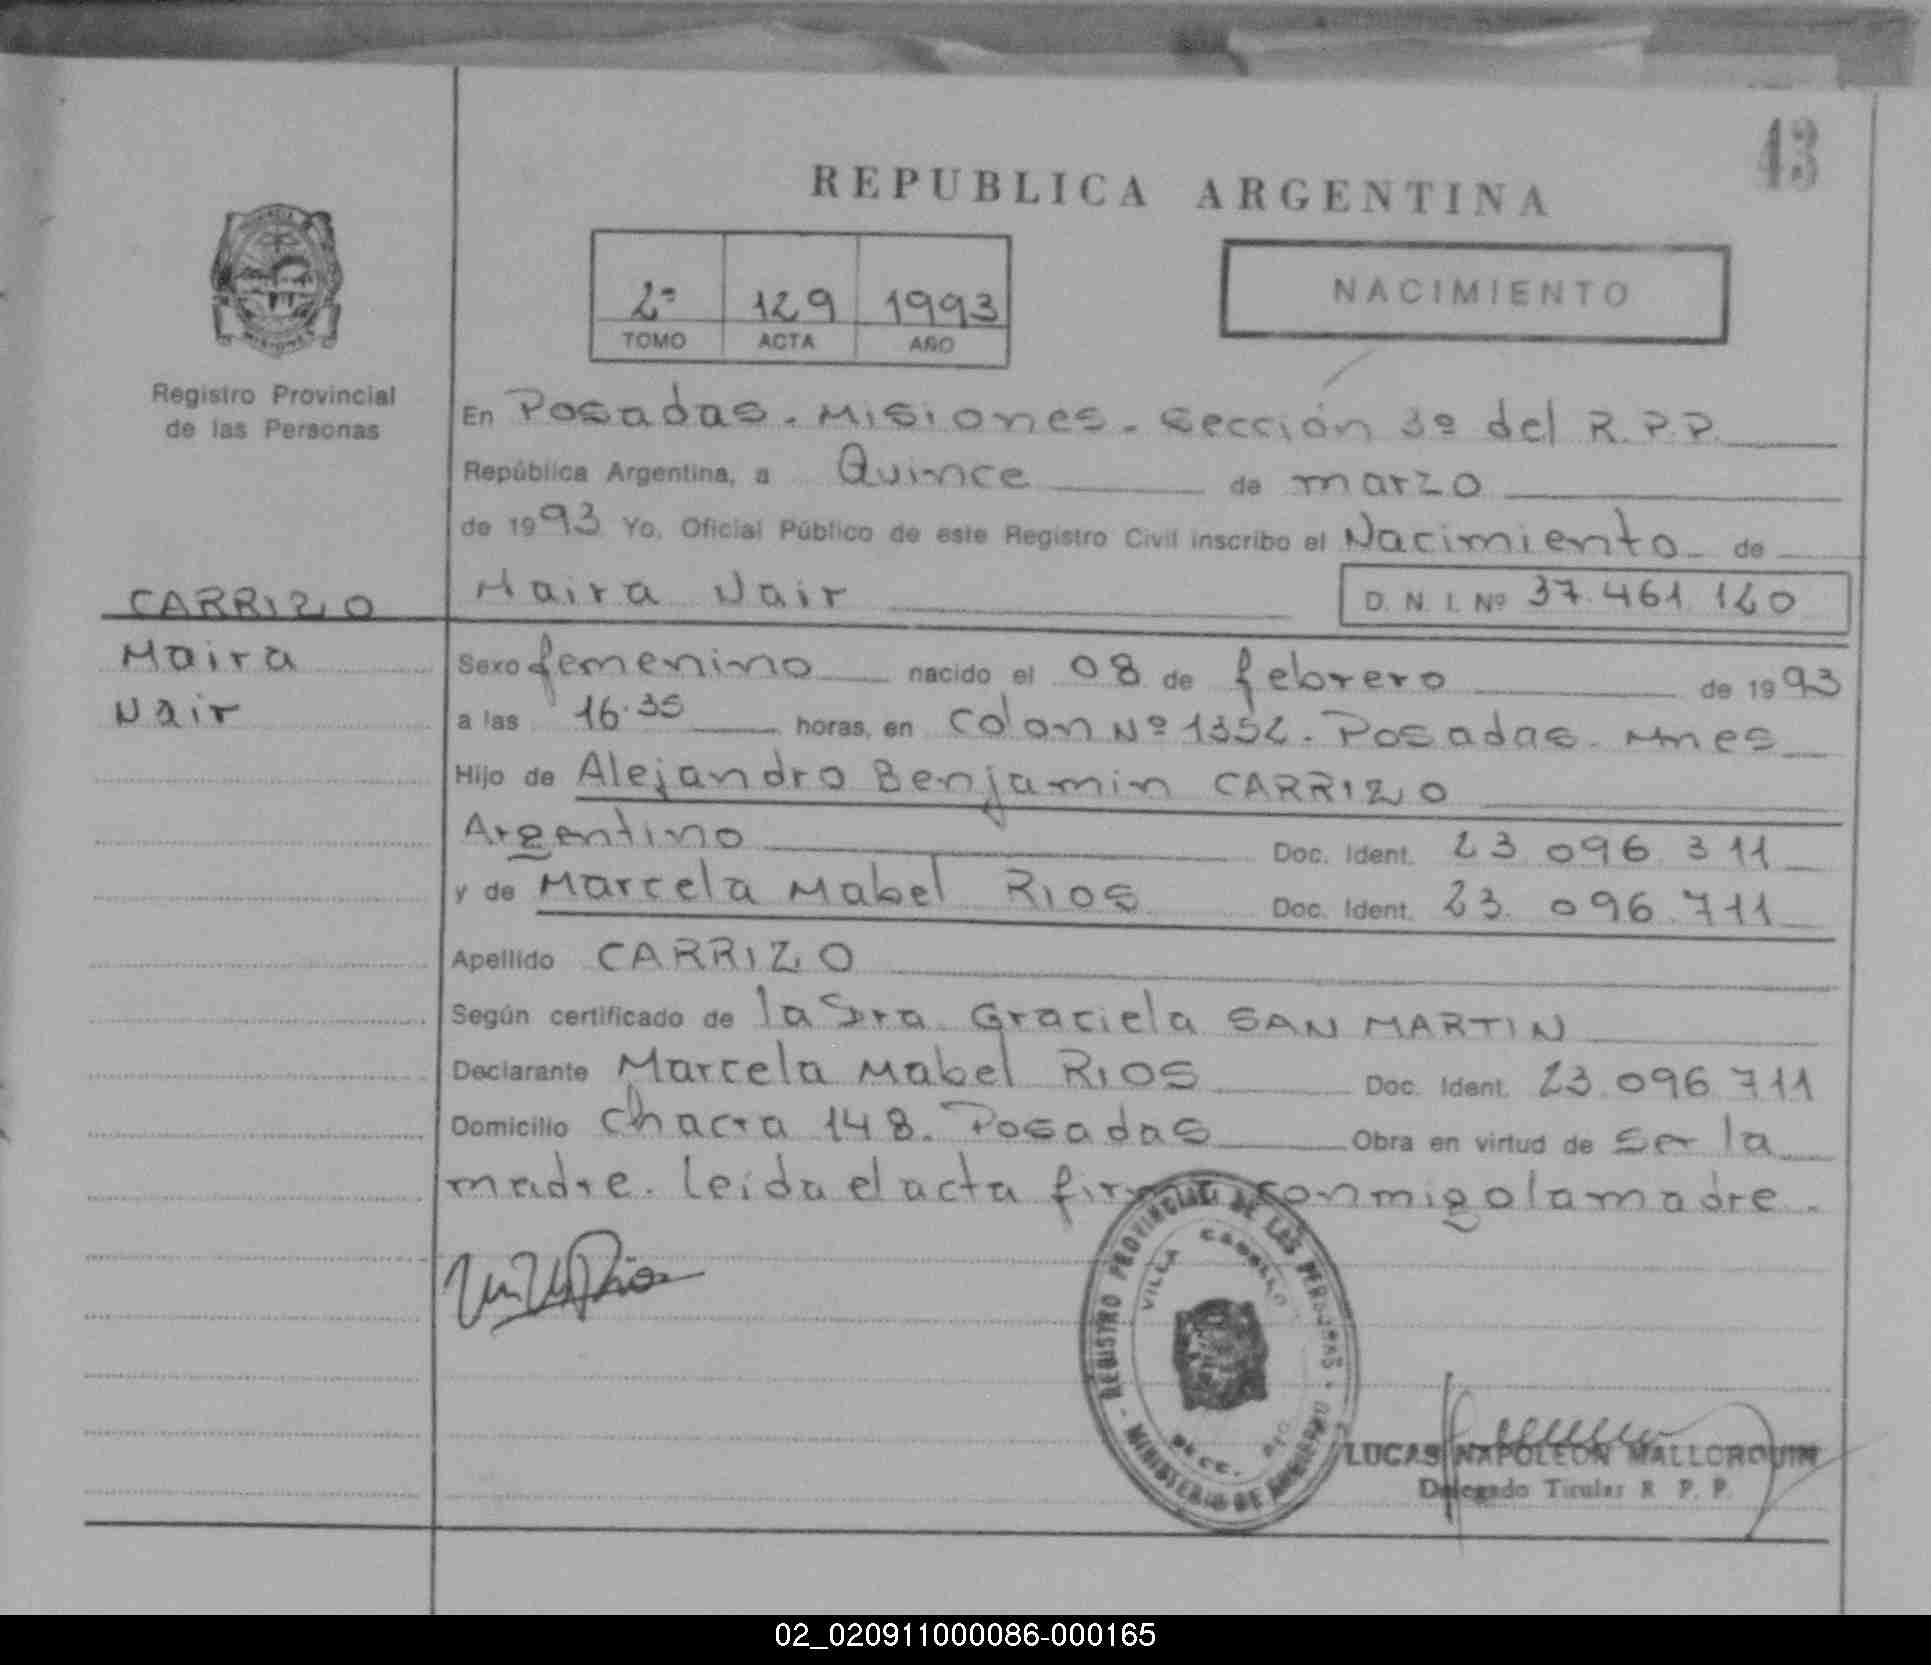 43
REPUBLICA ARGENTINA
2º 129 1993
TOMO ACTA AÑO
NACIMIENTO
Registro Provincial
de las Personas
En Posadas. Misiones. Sección 3º del R.P.P.
República Argentina, a Quince de marzo
de 1993 Yo, Oficial Público de este Registro Civil inscribo el Nacimiento de
Maira Nair D. N. I. Nº 37.461.120
CARRIZO
Maira
Nair
Sexo femenino nacido el 08 de febrero de 1993
a las 16.35 horas, en Colon Nº 1352. Posadas. Mnes
Hijo de Alejandro Benjamin CARRIZO
Argentino Doc. Ident. 23.096.311
y de Marcela Mabel RIOS Doc. Ident. 23.096.711
Apellido CARRIZO
Según certificado de la Sra. Graciela SAN MARTIN
Declarante Marcela Mabel RIOS Doc. Ident. 23.096.711
Domicilio Chacra 148. Posadas Obra en virtud de ser la
madre. leida el acta firma conmigo la madre.
REGISTRO PROVINCIAL DE LAS PERSONAS
VILLA CABELLO
MINISTERIO DE GOBIERNO
LUCAS NAPOLEON MALLORQUIN
Delegado Titular R. P. P.
02_020911000086-000165